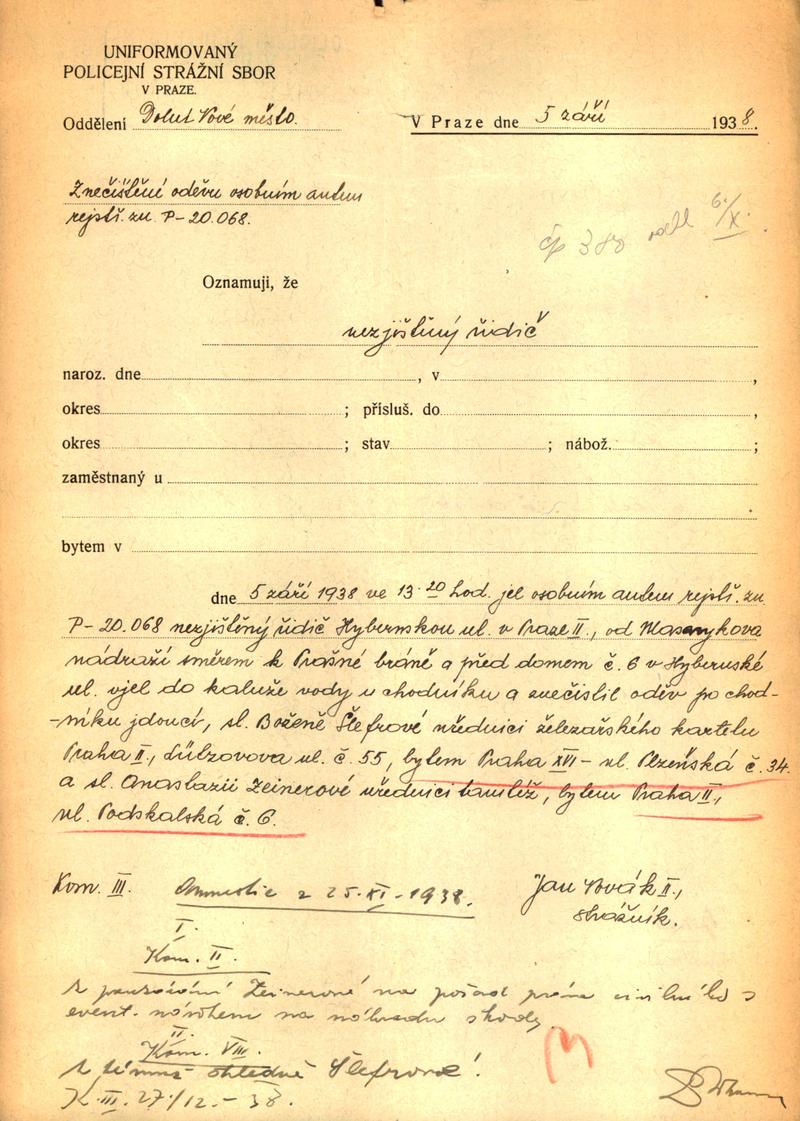 UNIFORMOVANÝ
POLICEJNÍ STRÁŽNÍ SBOR
V PRAZE.
Oddělení Nové město.
V Praze dne 5 září 1938.
Znečištění oděvu osobním autem
rejstř. zn. P-20.068.
čp 380 6./X.
Oznamuji, že
nezjištěný řidič
naroz. dne , v ,
okres ; přísluš. do ,
okres ; stav ; nábož. ;
zaměstnaný u
bytem v
dne 5 září 1938 ve 13·20 hod. jel osobním autem rejstř. zn
P-20.068 nezjištěný řidič Hybernskou ul. v Praze II., od Masarykova
nádraží směrem k Prašné bráně a před domem č. 6 v Hybernské
ul. vjel do kaluže vody u chodníku a znečistil oděv po chod-
-níku jdoucí, sl. Boženě Šlefrové úřednici železářského kartelu
Praha II., Lützovova ul. č. 55, bytem Praha XVI - ul. Plzeňská č. 34.
a sl. Anastazii Zeinerové úřednici tamtéž, bytem Praha II.,
ul. Podskalská č. 6.
Kom. III. Amnestie z 25.XI.-1938. Jan Novák II.,
strážník.
I.
Kom. II.
k Zeinerové na pořad práva civilního s
event. nárokem na náhradu škody.
II.
Kom. VIII.
k témuž ohledně Šlefrové!
K. III. 27/12.-38.